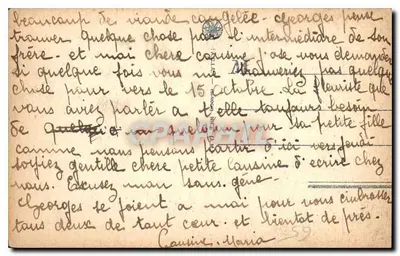 beaucoup de viande congelée - Georges pense
trouver quelque chose par l'intermédiaire de son
frère - et moi chere cousine j'ose vous demander
Si quelque fois vous ne trouveriez pas quelque
chose pour vers le 15 octobre La fleuriste que
vous aviez parler a t'elle toujours besoin
de quelqu'un ou quelqu'un pour sa petite fille
comme nous pensons partir d'ici vers jeudi
soyiez gentille chere petite Cousine d'ecrire chez
nous. Excusez mon sans-gène -
Georges se joient a moi pour vous embrasser
tous deux de tout cœur - et bientot de près.
Cousine Maria